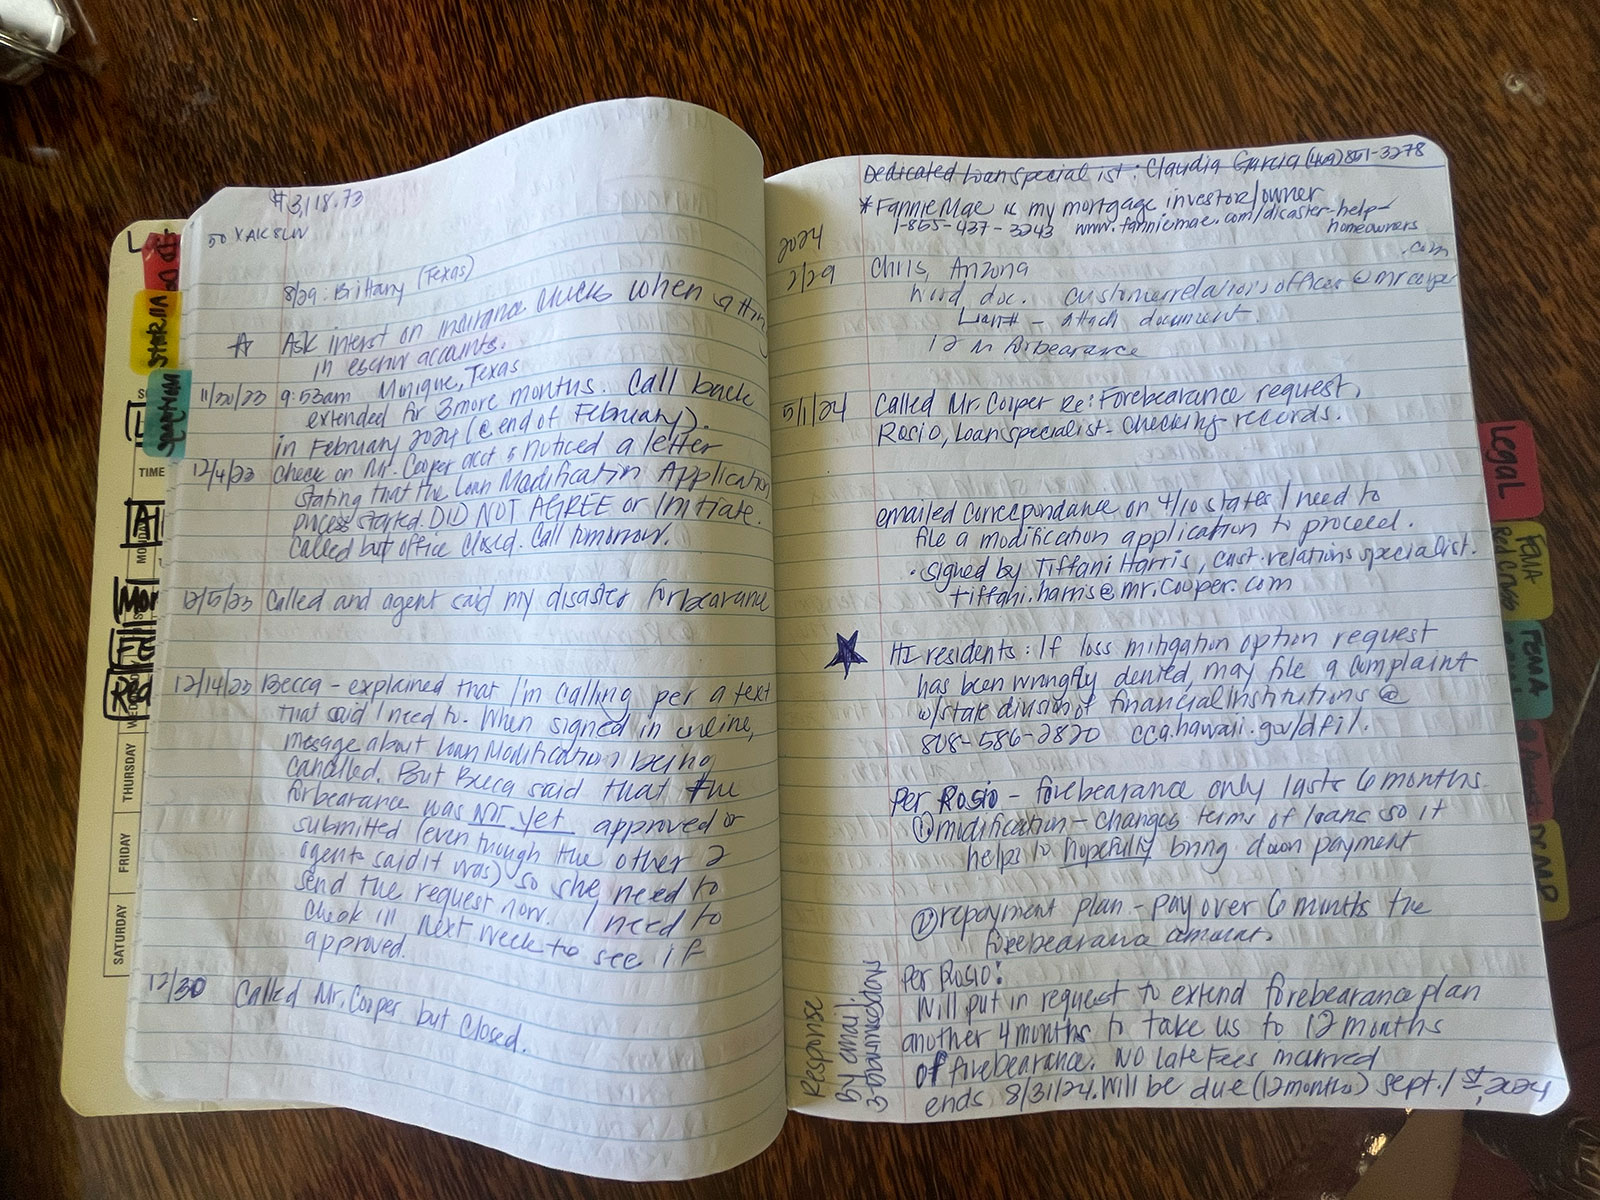 $3,118.73
8/29: Brittany (Texas)
Ask interst on insurance checks when sittin
in escrow accounts.
11/30/23 9:53am Monique, Texas
extended for 3 more months. Call back
in February 2024 (@ end of February).
12/4/23 Check on Mr. Cooper acct & noticed a letter
stating that the Loan Modification Application
process started. DID NOT AGREE or Initiate.
Called but office closed. Call tomorrow.
12/5/23 Called and agent said my disaster forbearance
12/14/23 Becca - explained that I'm calling per a text
that said I need to. When signed in online,
message about Loan Modification being
cancelled. But Becca said that the
forbearance was NOT yet approved or
submitted (even though the other 2
agents said it was) so she need to
send the request now. I need to
check in next week to see if
approved.
12/30 Called Mr. Cooper but closed.
Dedicated loan specialist: Claudia Garcia (469) 851-3278
* Fannie Mae is my mortgage investor/owner
1-855-437-3243 www.fanniemae.com/disaster-help-
homeowners
.com
2024
2/29 Chris, Arizona
Word doc. customerrelationsofficer@mrcooper
Loan# - attach document
12 m forbearance
5/1/24 Called Mr. Cooper Re: Forebearance request,
Rosio, Loan specialist - checking records.
emailed correspondance on 4/10 states I need to
file a modification application to proceed.
· signed by Tiffani Harris, cust. relations specialist.
tiffani.harris@mr.cooper.com
HI residents: If loss mitigation option request
has been wrongfly denied, may file a complaint
w/state division of financial Institutions @
808-586-2820 cca.hawaii.gov/dfi/.
Per Rosio - forebearance only lasts 6 months.
① modification - changes terms of loans so it
helps to hopefully bring down payment
② repayment plan - pay over 6 months the
forebearance amount.
Per Rosio:
Will put in request to extend forebearance plan
another 4 months to take us to 12 months
of forebearance. No Late Fees incurred
ends 8/31/24. Will be due (12 months) Sept. 1st, 2024
Response
By email:
Legal
FEMA
Red Cross
FEMA
TIME
THURSDAY
FRIDAY
SATURDAY